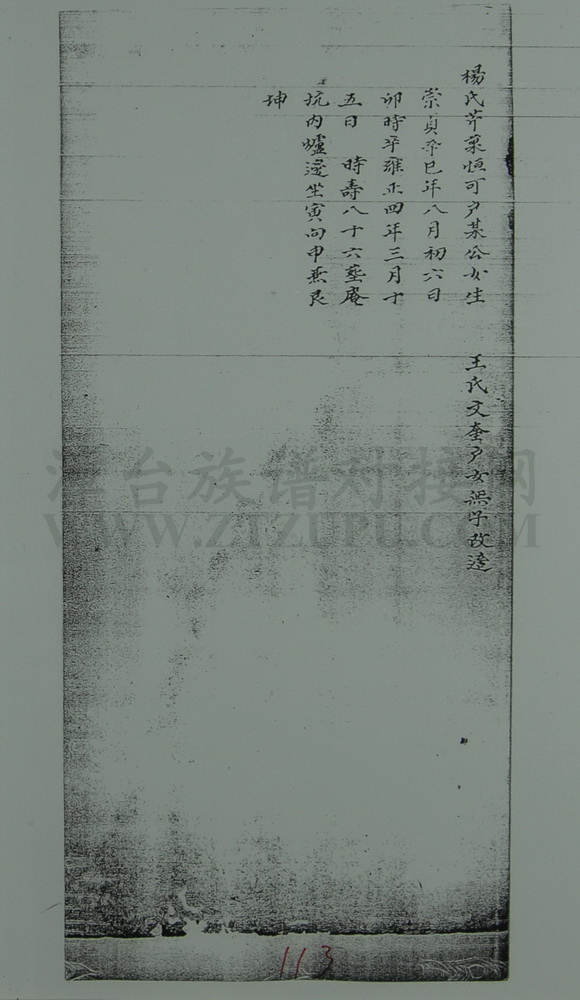 楊氏芹菓恒可户某公女生
崇貞辛巳年八月初六日
卯時卒雍正四年三月十
五日 時壽八十六塟庵
坑内墟邊坐寅向申兼艮
坤
王氏文奎户女無子故遠
江台族谱对接网
WWW.ZTZUPU.COM
113